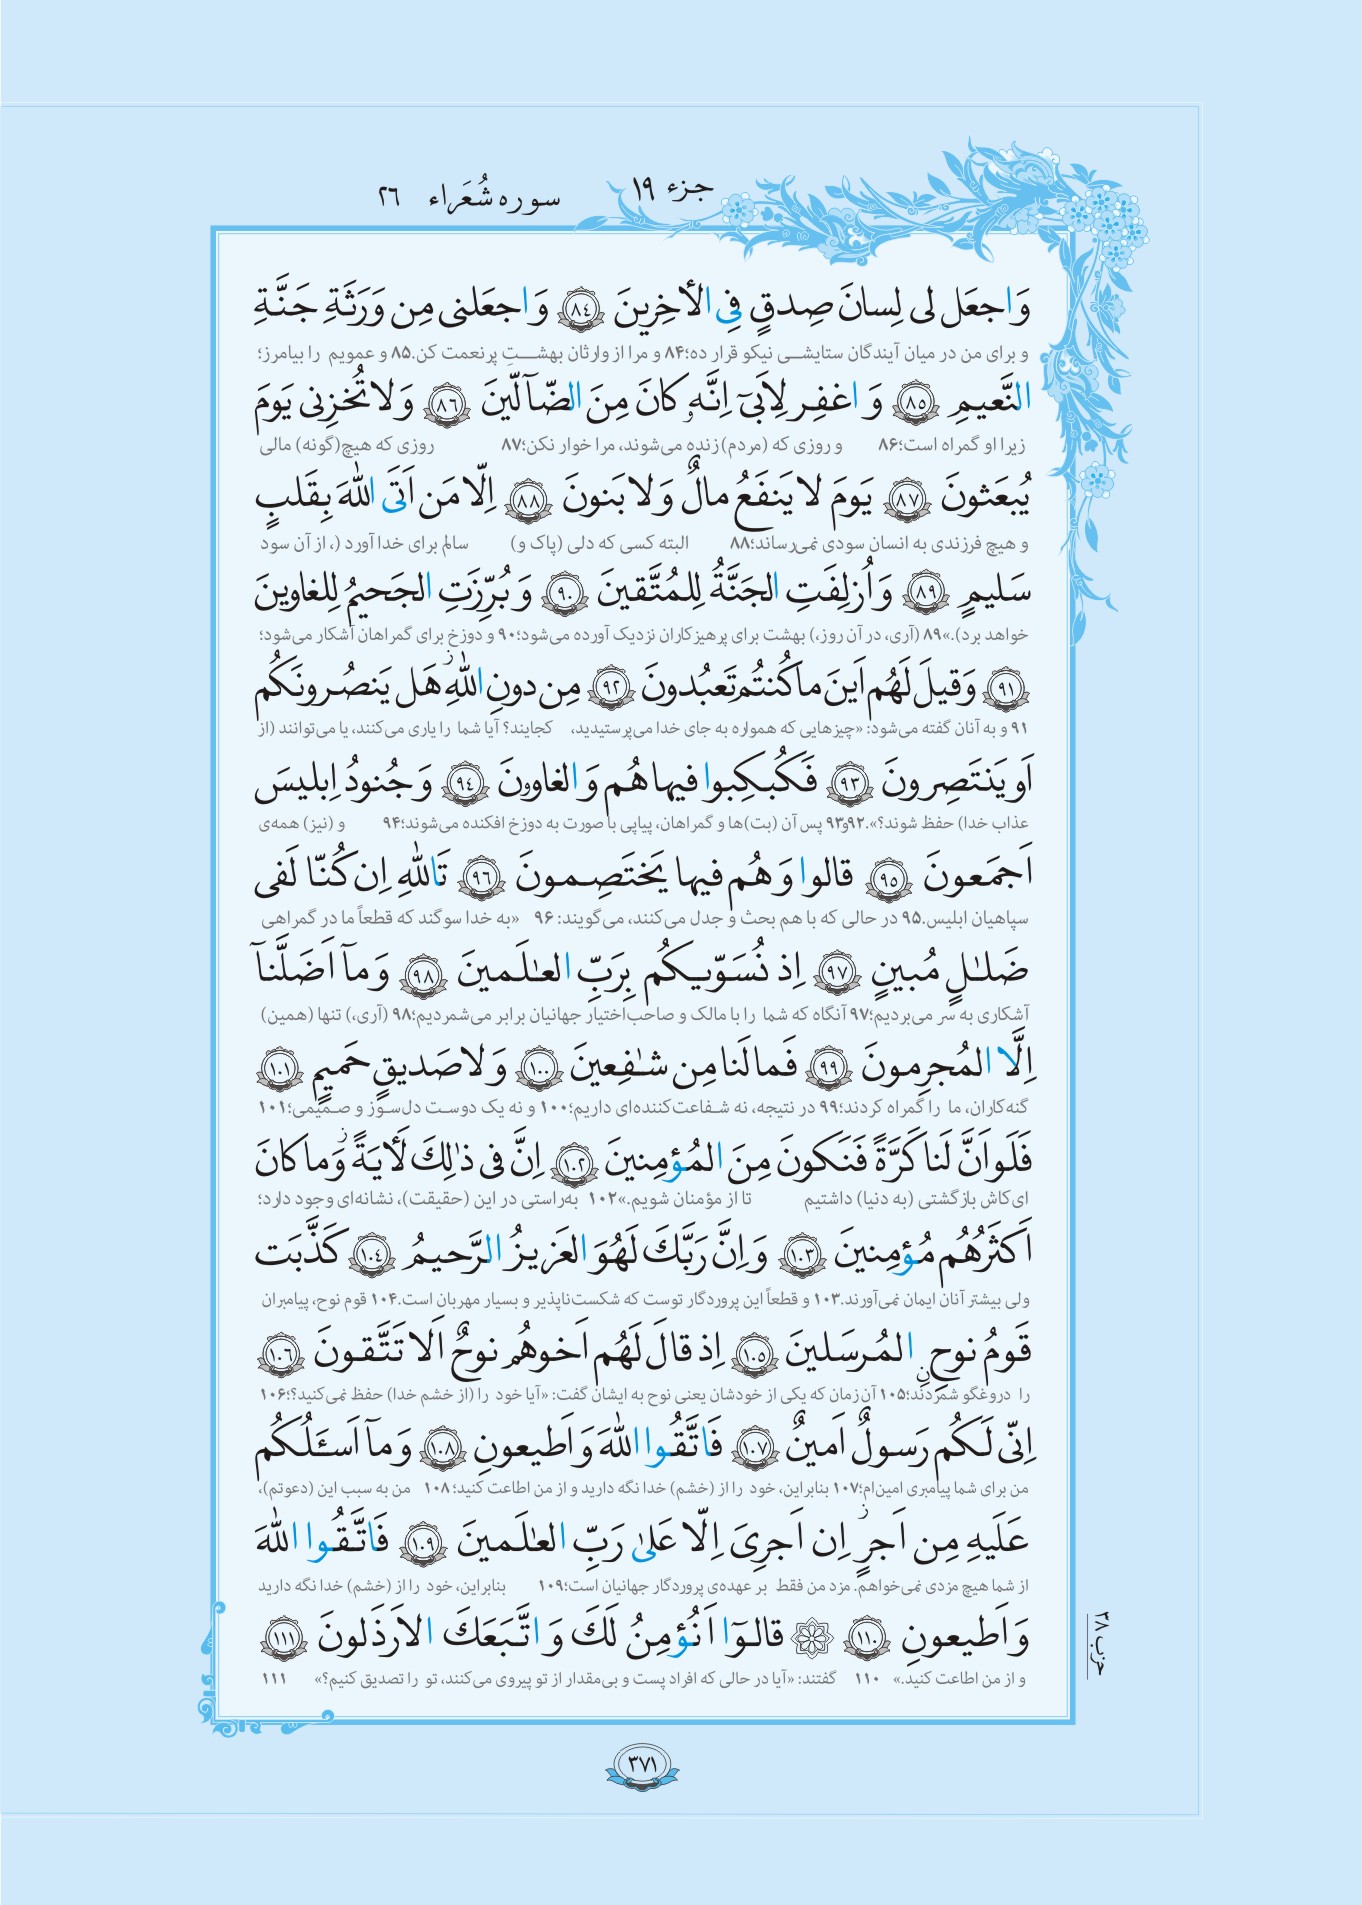 جزء ۱۹
سوره شُعَراء ۲۶
وَاجعَل لی لِسانَ صِدقٍ فِی الأخِرینَ ﴿٨٤﴾ وَاجعَلنی مِن وَرَثَةِ جَنَّةِ
و برای من در میان آیندگان ستایشی نیکو قرار ده؛۸۴ و مرا از وارثان بهشتِ پرنعمت کن.۸۵ و عمویم را بیامرز؛
النَّعیمِ ﴿٨٥﴾ وَاغفِر لِاَبیٓ اِنَّهۥ کانَ مِنَ الضّآلّینَ ﴿٨٦﴾ وَلا تُخزِنی یَومَ
زیرا او گمراه است؛۸۶ و روزی که (مردم) زنده می‌شوند، مرا خوار نکن؛۸۷ روزی که هیچ(گونه) مالی
یُبعَثونَ ﴿٨٧﴾ یَومَ لا یَنفَعُ مالٌ وَلا بَنونَ ﴿٨٨﴾ اِلّا مَن اَتَی اللّٰهَ بِقَلبٍ
و هیچ فرزندی به انسان سودی نمی‌رساند؛۸۸ البته کسی که دلی (پاک و) سالم برای خدا آورد (، از آن سود
سَلیمٍ ﴿٨٩﴾ وَاُزلِفَتِ الجَنَّةُ لِلمُتَّقینَ ﴿٩٠﴾ وَبُرِّزَتِ الجَحیمُ لِلغاوینَ
خواهد برد).»۸۹ (آری، در آن روز،) بهشت برای پرهیزکاران نزدیک آورده می‌شود؛۹۰ و دوزخ برای گمراهان آشکار می‌شود؛
﴿٩١﴾ وَقیلَ لَهُم اَینَ ما کُنتُم تَعبُدونَ ﴿٩٢﴾ مِن دونِ اللّٰهِ ز هَل یَنصُرونَکُم
۹۱ و به آنان گفته می‌شود: «چیزهایی که همواره به جای خدا می‌پرستیدید، کجایند؟ آیا شما را یاری می‌کنند، یا می‌توانند (از
اَو یَنتَصِرونَ ﴿٩٣﴾ فَکُبکِبوا فیها هُم وَالغاوۥنَ ﴿٩٤﴾ وَجُنودُ اِبلیسَ
عذاب خدا) حفظ شوند؟».۹۲و۹۳ پس آن (بت)ها و گمراهان، پیاپی با صورت به دوزخ افکنده می‌شوند؛۹۴ و (نیز) همه‌ی
اَجمَعونَ ﴿٩٥﴾ قالوا وَهُم فیها یَختَصِمونَ ﴿٩٦﴾ تَاللّٰهِ اِن کُنّا لَفی
سپاهیان ابلیس.۹۵ در حالی که با هم بحث و جدل می‌کنند، می‌گویند: ۹۶ «به خدا سوگند که قطعاً ما در گمراهی
ضَلـٰلٍ مُبینٍ ﴿٩٧﴾ اِذ نُسَوّیکُم بِرَبِّ العـٰلَمینَ ﴿٩٨﴾ وَمآ اَضَلَّنآ
آشکاری به سر می‌بردیم؛۹۷ آنگاه که شما را با مالک و صاحب‌اختیار جهانیان برابر می‌شمردیم؛۹۸ (آری،) تنها (همین)
اِلَّا المُجرِمونَ ﴿٩٩﴾ فَما لَنا مِن شـٰفِعینَ ﴿١٠٠﴾ وَلا صَدیقٍ حَمیمٍ ﴿١٠١﴾
گنه‌کاران، ما را گمراه کردند؛۹۹ در نتیجه، نه شفاعت‌کننده‌ای داریم؛۱۰۰ و نه یک دوست دل‌سوز و صمیمی؛۱۰۱
فَلَو اَنَّ لَنا کَرَّةً فَنَکونَ مِنَ المُؤمِنینَ ﴿١٠٢﴾ اِنَّ فی ذٰلِکَ لَأیَةً ز وَما کانَ
ای‌کاش بازگشتی (به دنیا) داشتیم تا از مؤمنان شویم.»۱۰۲ به‌راستی در این (حقیقت)، نشانه‌ای وجود دارد؛
اَکثَرُهُم مُؤمِنینَ ﴿١٠٣﴾ وَاِنَّ رَبَّکَ لَهُوَ العَزیزُ الرَّحیمُ ﴿١٠٤﴾ کَذَّبَت
ولی بیشتر آنان ایمان نمی‌آورند.۱۰۳ و قطعاً این پروردگار توست که شکست‌ناپذیر و بسیار مهربان است.۱۰۴ قوم نوح، پیامبران
قَومُ نوحٍنِ المُرسَلینَ ﴿١٠٥﴾ اِذ قالَ لَهُم اَخوهُم نوحٌ اَلا تَتَّقونَ ﴿١٠٦﴾
را دروغگو شمردند؛۱۰۵ آن‌زمان که یکی از خودشان یعنی نوح به ایشان گفت: «آیا خود را (از خشم خدا) حفظ نمی‌کنید؟؛۱۰۶
اِنّی لَکُم رَسولٌ اَمینٌ ﴿١٠٧﴾ فَاتَّقُوا اللّٰهَ وَاَطیعونِ ﴿١٠٨﴾ وَمآ اَسـَٔلُکُم
من برای شما پیامبری امین‌ام؛۱۰۷ بنابراین، خود را از (خشم) خدا نگه دارید و از من اطاعت کنید؛۱۰۸ من به سبب این (دعوتم)،
عَلَیهِ مِن اَجرٍ ز اِن اَجرِیَ اِلّا عَلیٰ رَبِّ العـٰلَمینَ ﴿١٠٩﴾ فَاتَّقُوا اللّٰهَ
از شما هیچ مزدی نمی‌خواهم. مزد من فقط بر عهده‌ی پروردگار جهانیان است؛۱۰۹ بنابراین، خود را از (خشم) خدا نگه دارید
وَاَطیعونِ ﴿١١٠﴾ ۞ قالوٓا اَنُؤمِنُ لَکَ وَاتَّبَعَکَ الاَرذَلونَ ﴿١١١﴾
و از من اطاعت کنید.» ۱۱۰ گفتند: «آیا در حالی که افراد پست و بی‌مقدار از تو پیروی می‌کنند، تو را تصدیق کنیم؟» ۱۱۱
حزب ۳۸
۳۷۱